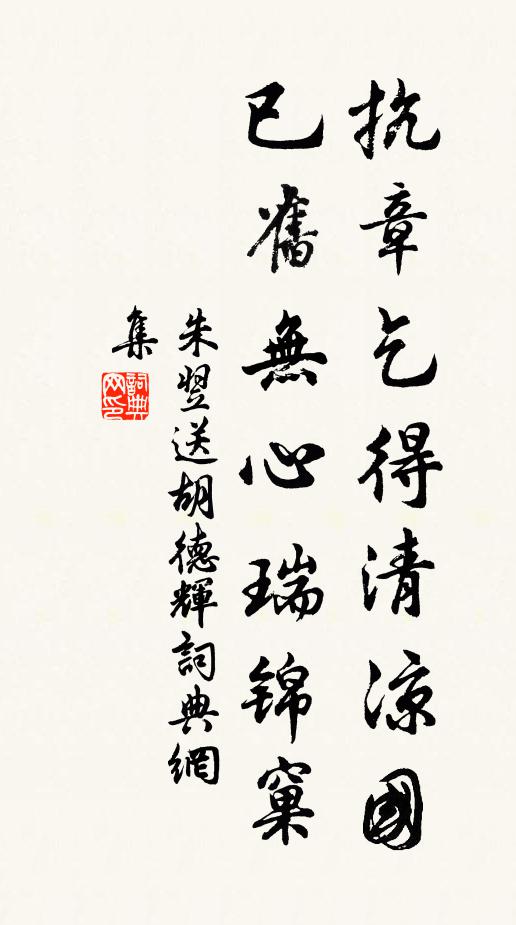 抗章乞得清涼國
已舊無心瑞锦窠
朱翌送胡德輝詞典網
集
詞典网印